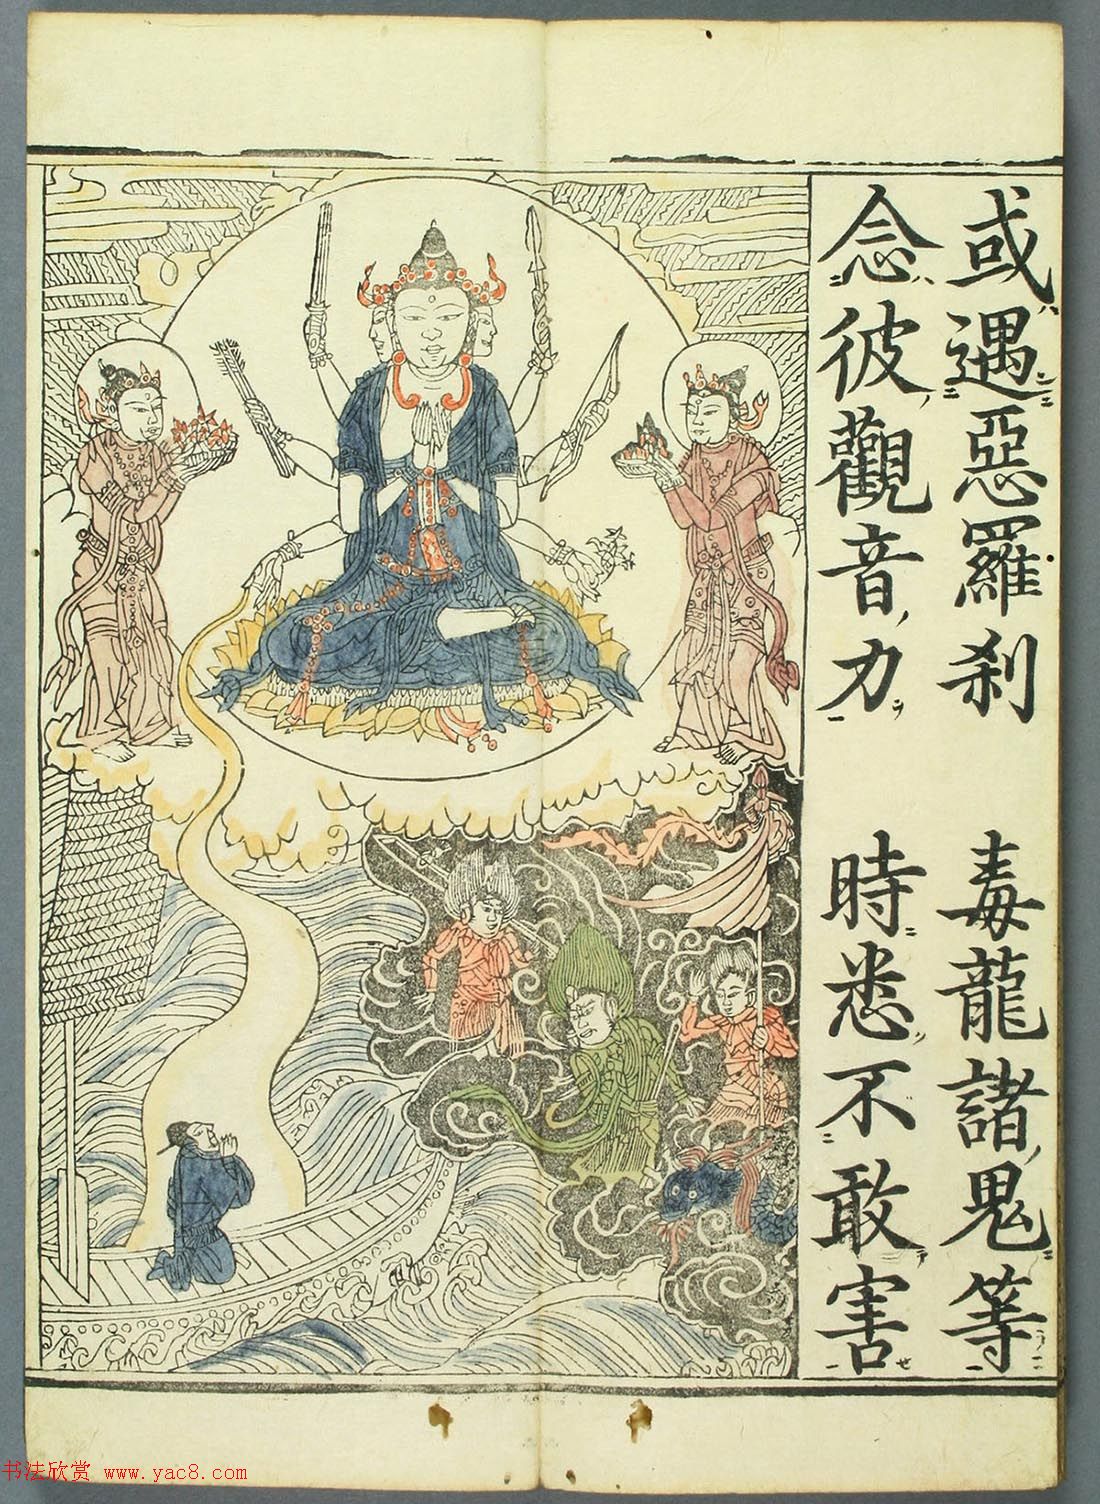 或遇惡羅刹 毒龍諸鬼等
念彼觀音力 時悉不敢害
书法欣赏 www.yac8.com